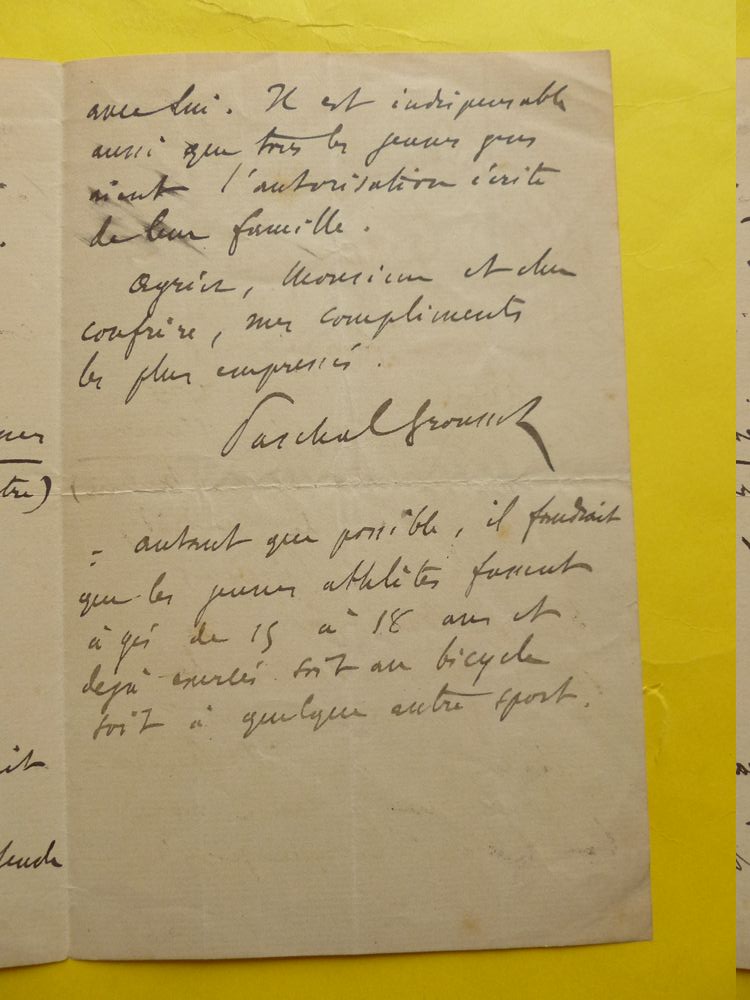 avec lui. Il est indispensable
aussi que tous les jeunes gens
aient l'autorisation écrite
de leur famille.
Agréez, Monsieur et cher
confrère, mes compliments
les plus empressés.
Paschal Grousset
- autant que possible, il faudrait
que les jeunes athlètes fussent
âgés de 15 à 18 ans et
dejà exercés soit au bicycle
soit à quelque autre sport.
tre)
it